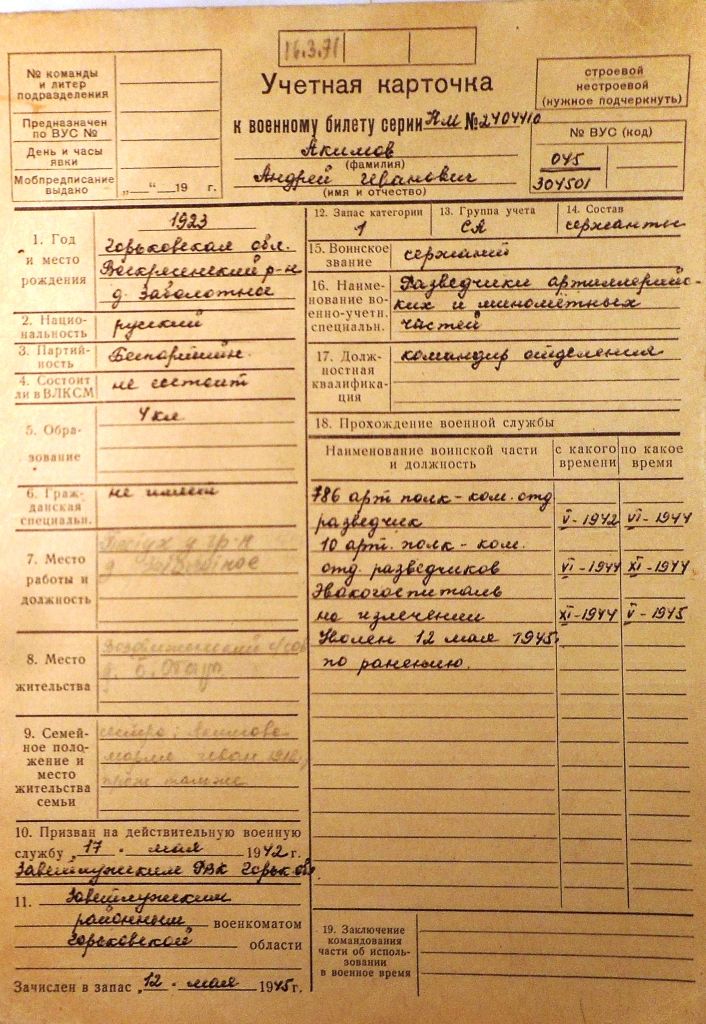 16.3.71
№ команды
и литер
подразделения
Предназначен
по ВУС №
День и часы
явки
Мобпредписание
выдано „ “ 19 г.
Учетная карточка
к военному билету серии НМ № 2404410
Акимов
(фамилия)
Андрей Иванович
(имя и отчество)
строевой
нестроевой
(нужное подчеркнуть)
№ ВУС (код)
045
304501
1. Год
и место
рождения
1923
Горьковская обл.
Воскресенский р-н
д. Заболотное
2. Нацио-
нальность
русский
3. Партий-
ность
Беспартийн.
4. Состоит
ли в ВЛКСМ
не состоит
5. Обра-
зование
4 кл
6. Граж-
данская
специальн.
не имеет
7. Место
работы и
должность
Пастух д.
д.
8. Место
жительства
Воздвиженский
д. Б.
9. Семей-
ное поло-
жение и
место
жительства
семьи
сестра: Акимова
Иван
там же
10. Призван на действительную военную
службу „17 “ мая 1942 г.
Заветлужским РВК Горьк обл.
11. Заветлужским
районным военкоматом
Горьковской области
Зачислен в запас „12 “ мая 1945 г.
12. Запас категории
1
13. Группа учета
СА
14. Состав
сержанты
15. Воинское
звание
сержант
16. Наиме-
нование во-
енно-учетн.
специальн.
Разведчики артиллерийс-
ких и минометных
частей
17. Долж-
ностная
квалифика-
ция
командир отделения
18. Прохождение военной службы
Наименование воинской части
и должность
с какого
времени
по какое
время
786 арт полк - ком. отд
разведчик V - 1942 VI - 1944
10 арт. полк - ком.
отд. разведчиков VI - 1944 XI - 1944
Эвакогоспиталь
на излечении XI - 1944 V - 1945
Уволен 12 мая 1945
по ранению.
19. Заключение
командования
части об исполь-
зовании
в военное время